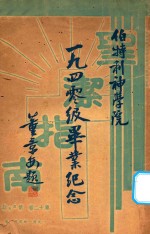 伯特利神學院
一九四零級畢業紀念
聖潔指南
董景安題